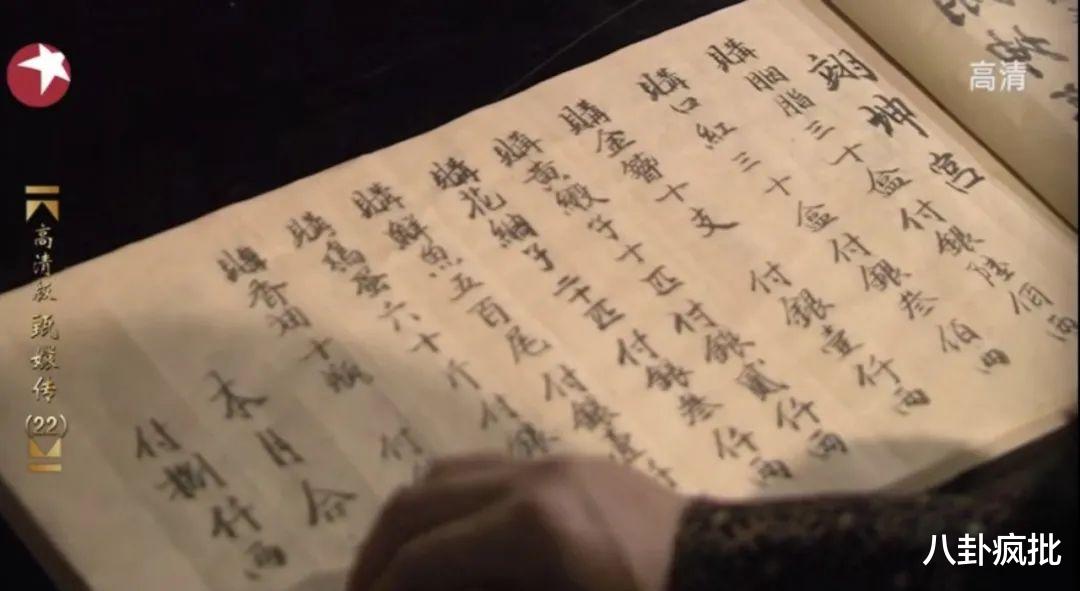 高清
翊坤宮
購胭脂三十盒付銀陸佰兩
購口紅三十盒付銀叁佰兩
購金簪十支付銀壹仟兩
購黃緞子十匹付銀貳仟兩
購花紬子二十匹付銀叁仟兩
購鮮魚五百尾付銀壹仟
購鷄蛋六十斤付銀
購香油十瓶付
本日合
付捌仟兩
高清版 甄嬛传
(22)
八卦疯批